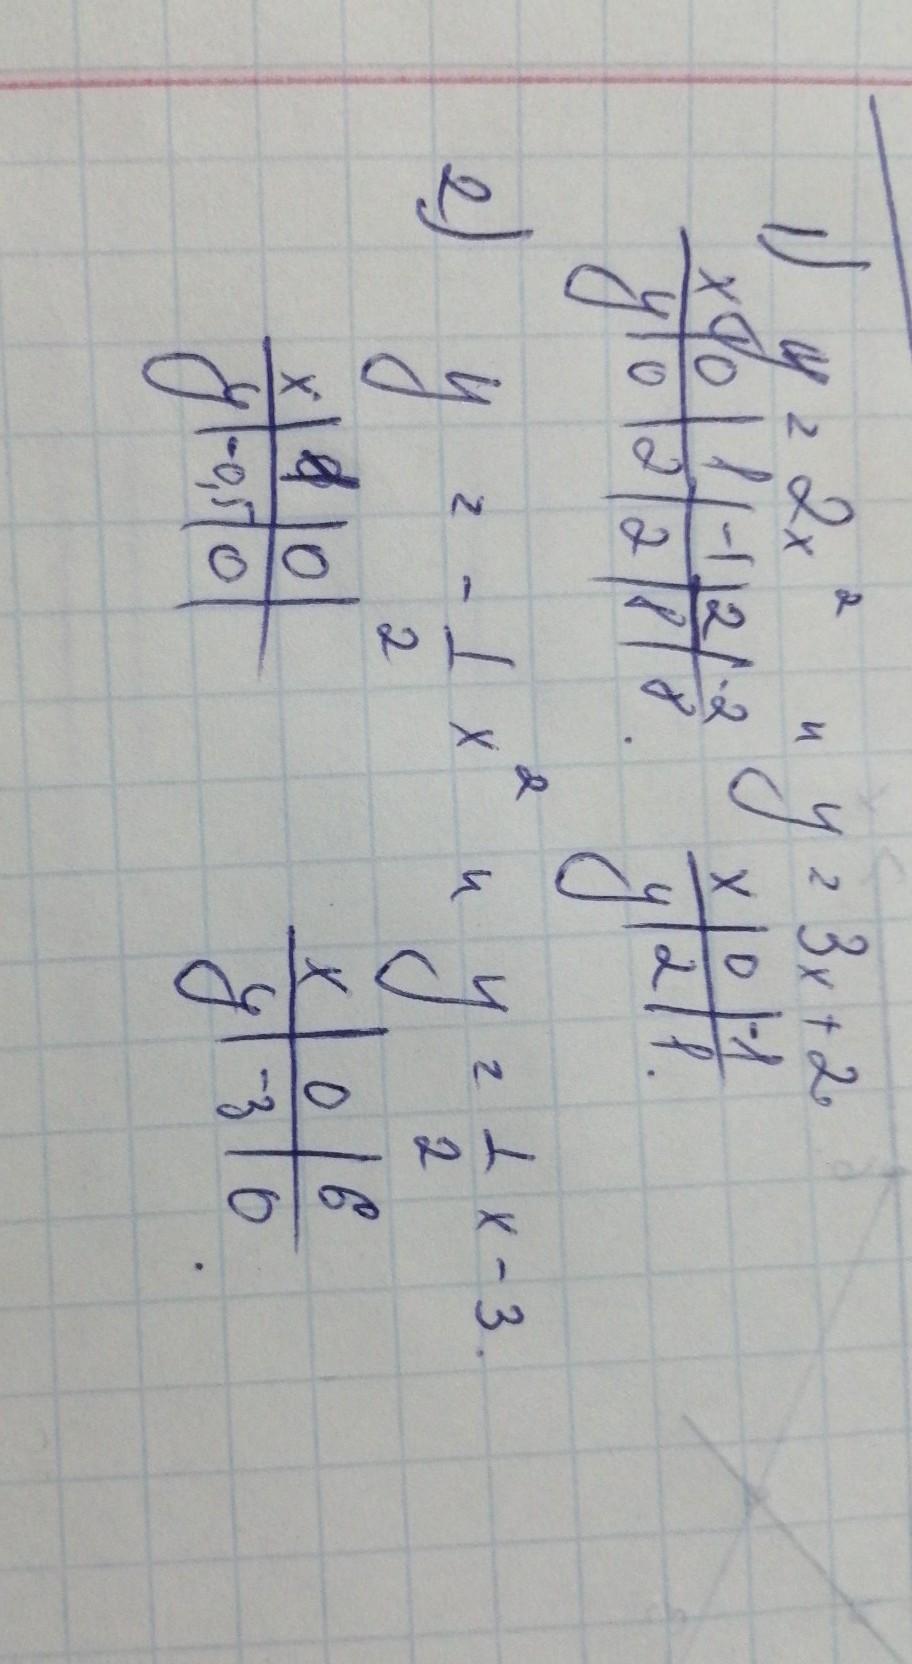 1) y = 2x² и y = 3x + 2.
x | 0 | 1 | -1 | 2 | -2
y | 0 | 2 | 2 | 8 | 8.
x | 0 | -1
y | 2 | 1.
2) y = -1/2 x² и y = 1/2 x - 3.
x | | 0
y | -0,5 | 0
x | 0 | 6
y | -3 | 0.